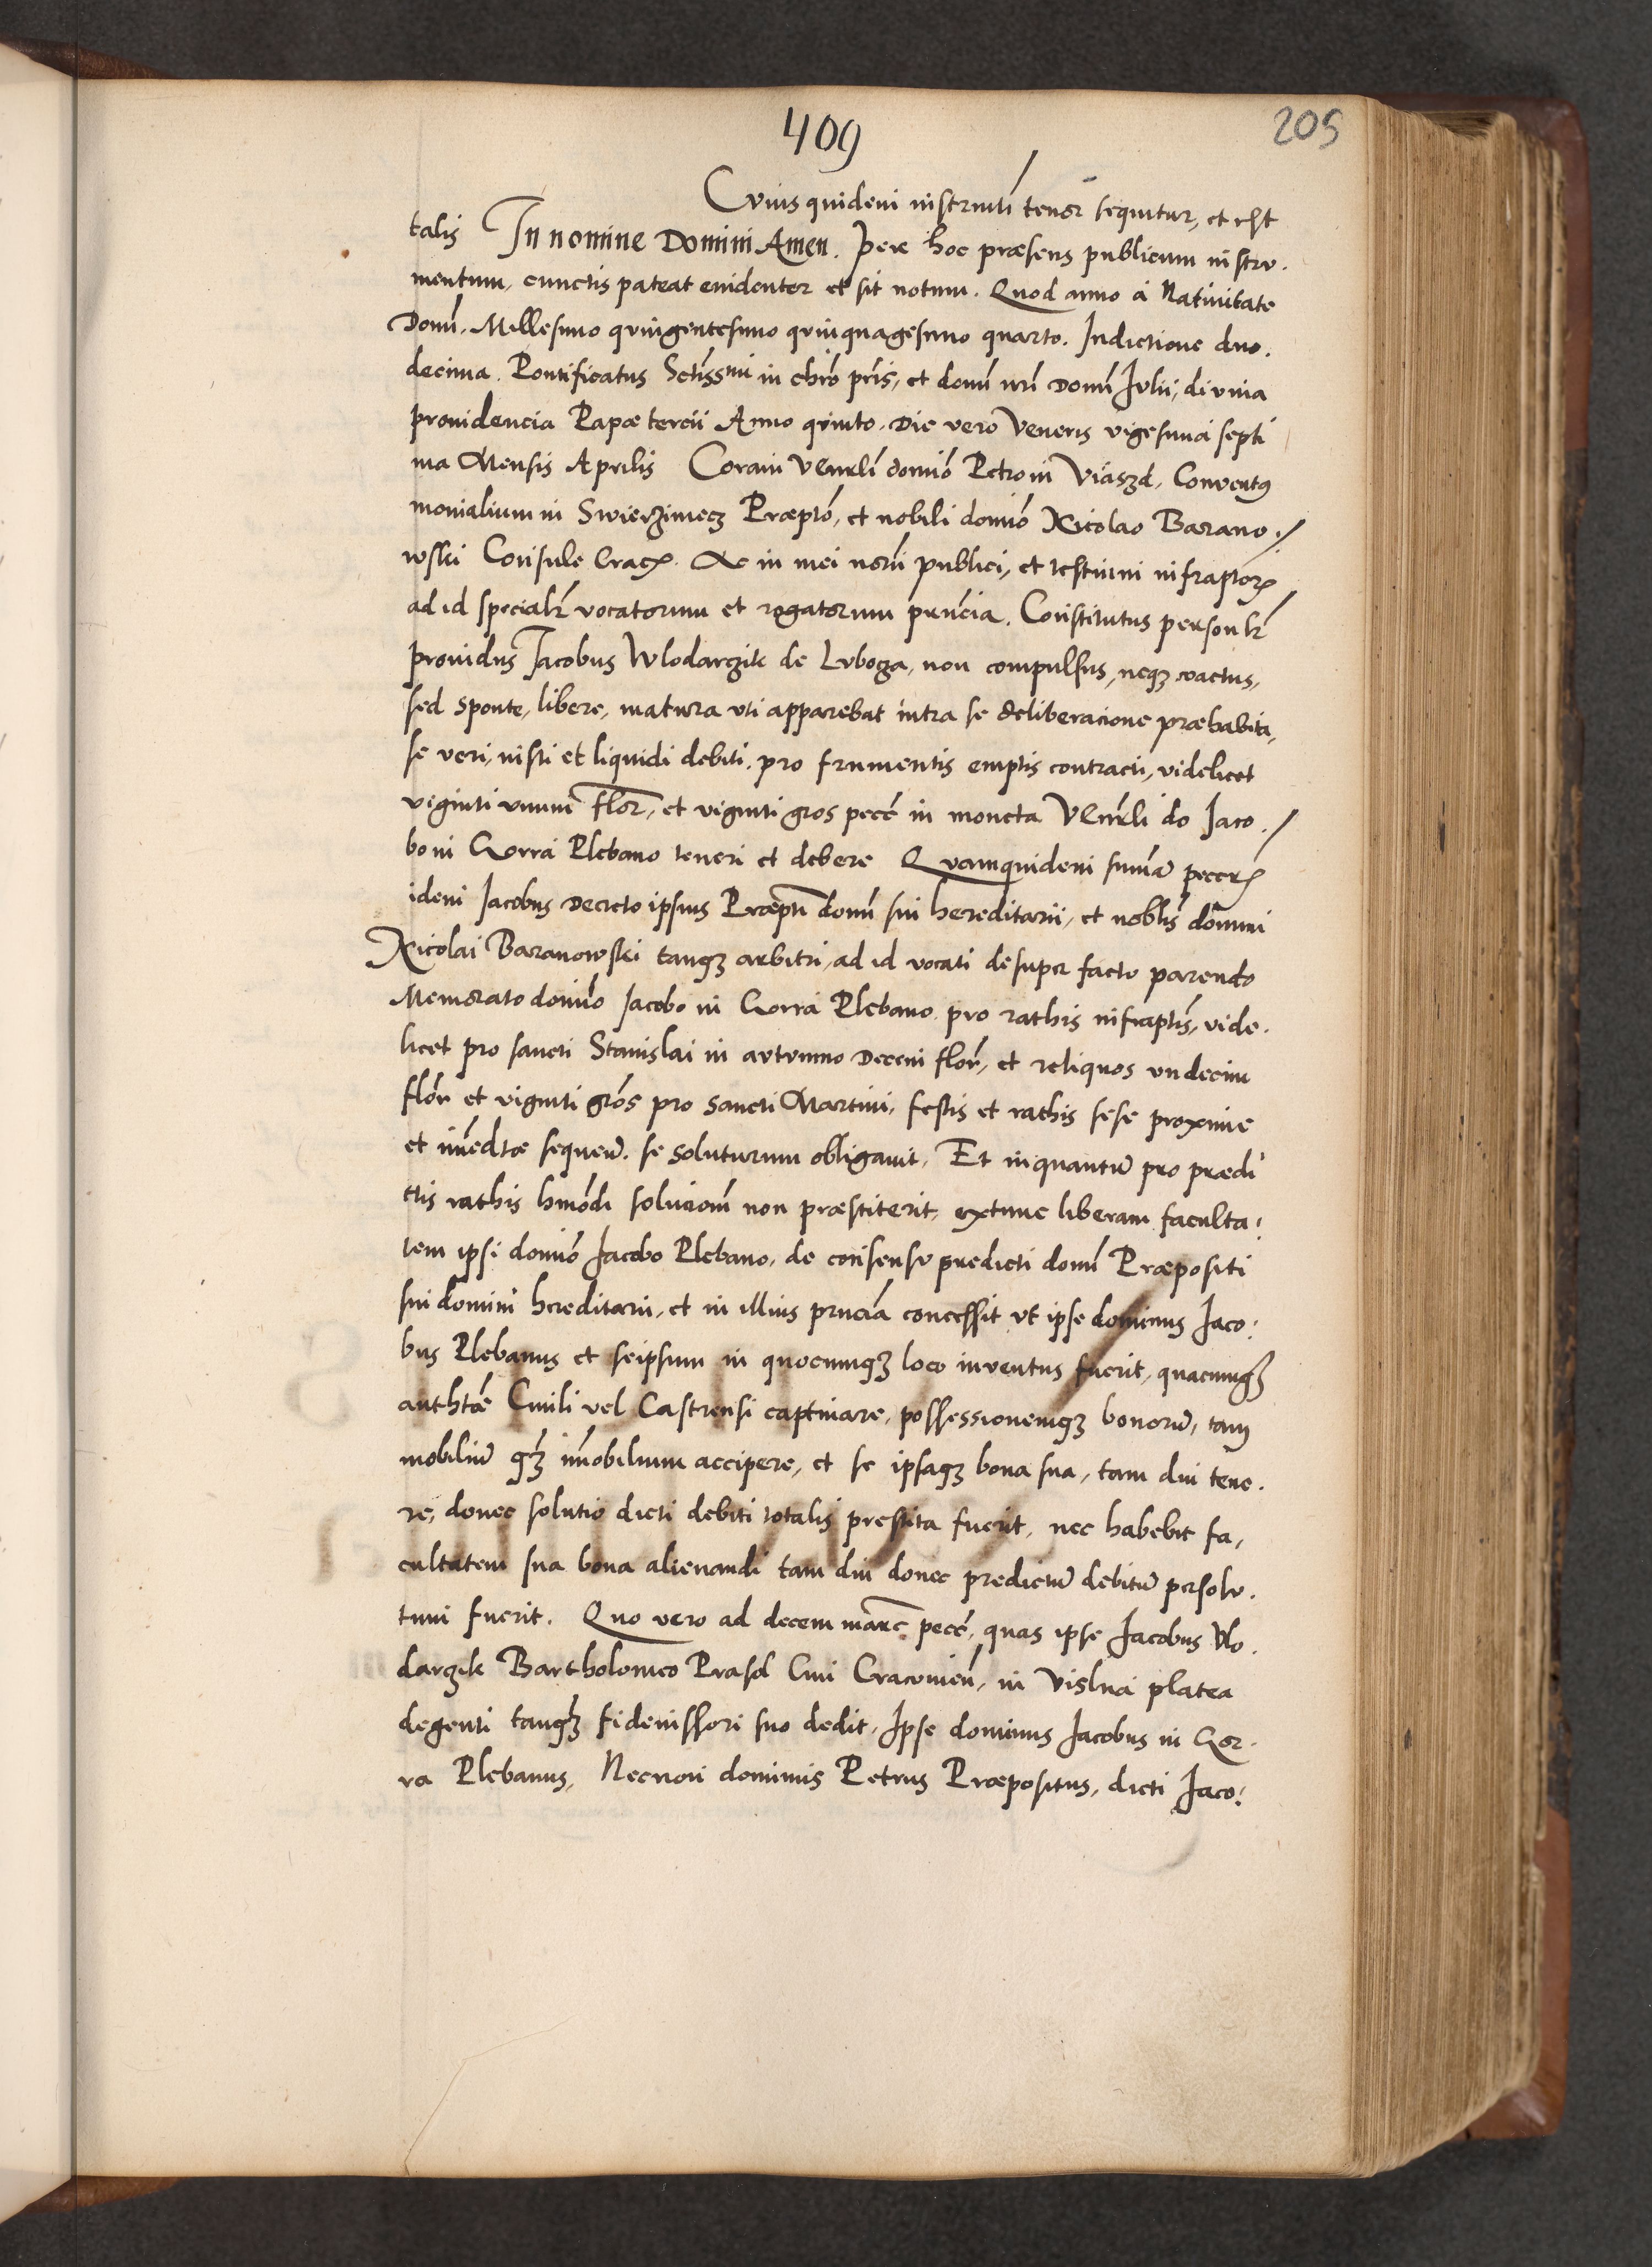 409
205
Cuius quidem instrumti tenor sequitur, et est
talis In nomine Domini Amen. Per hoc præsens publicum instru.
mentum, cunctis pateat euidenter et sit notum. Quod anno à Natiuitate
Domī. Millesimo quingentesimo quinquagesimo quarto. Indictione duo.
decima. Pontificatus Sctissmi in chro pris, et domī nrī Domī Julii, diuina
prouidencia Papæ tercii Anno quinto. Die vero Veneris vigesima septi
ma Mensis Aprilis Coram Venrli domīo Petro in Viaszd, Conuentus
monialium in Swierzinecz Præpto, et nobili domīo Nicolao Barano./
wski Consule Crac. Ac in mei norii publici, et testium infraptorum
ad id specialr vocatorum et rogatorum prncia. Constitutus personlr
prouidus Jacobus Wlodarczik de Luboga, non compulsus, neq coactus,
sed sponte, libere, matura vti apparebat intra se deliberacione præhabita,
se veri, iusti et liquidi debiti, pro frumentis emptis contracti, videlicet
viginti vnum flor, et viginti gros pecē in moneta Venrli do Jaco./
bo in Gorra Plebano teneri et debere Quamquidem summā peccrum
idem Jacobus Decreto ipsius Præpti domī sui hereditarii, et noblis domini
Nicolai Baranowski tanq arbitri, ad id vocati desuper facto parendo
Memorato domīo Jacobo in Gorra Plebano pro rathis infraptis, vide.
licet pro sancti Stanislai in autumno Decem flor, et reliquos vndecim
flor et viginti gros pro sancti Martini, festis et rathis sese proxime
et immedtæ sequen. se soluturum obligauit. Et inquantū pro prædi
ctis rathis hmodi solucionī non præstiterit, extunc liberam faculta:
tem ipsi domīo Jacobo Plebano, de consensu predicti domī Præpositi
sui domini hereditarii, et in illius prncia concessit vt ipse dominus Jaco:
bus Plebanus et seipsum in quocunq loco inventus fuerit, quacunq
authtæ Ciuili vel Castrensi captiuare, possessionemq bonorū, tam
mobiliū q immobilium accipere, et se ipsaq bona sua, tam diu tene.
re, donec solutio dicti debiti totalis prestita fuerit, nec habebit fa,
cultatem sua bona alienandi tam diu donec predictū debitū persolu.
tum fuerit. Quo vero ad decem marc pecē, quas ipse Jacobus Wlo.
darczik Bartholomeo Prasol Ciui Cracouien, in Vislna platea
degenti tanq fideiussori suo dedit, Ipse dominus Jacobus in Gor.
ra Plebanus, Necnon dominus Petrus Præpositus, dicti Jaco: